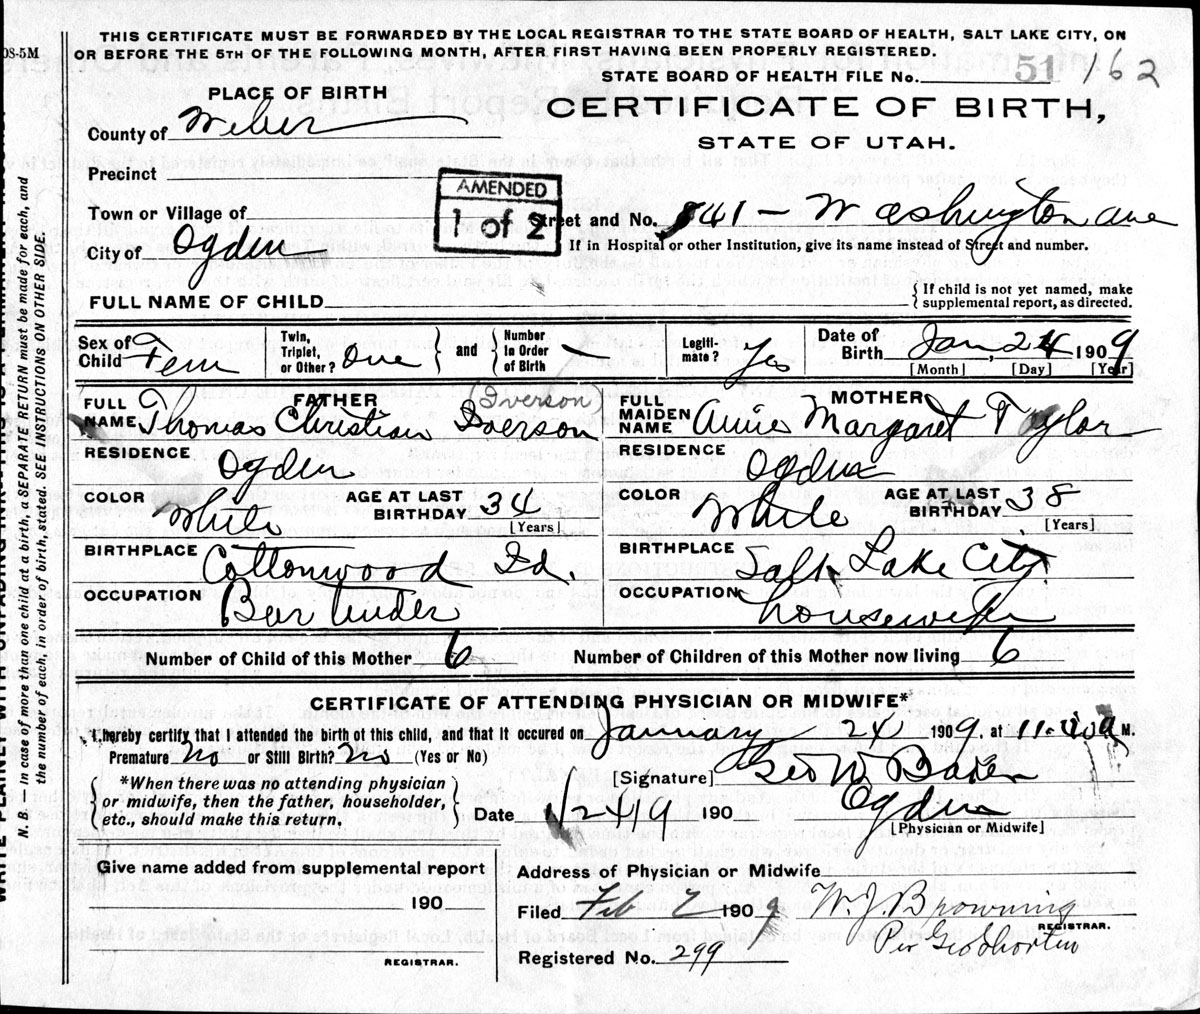 08-5M
THIS CERTIFICATE MUST BE FORWARDED BY THE LOCAL REGISTRAR TO THE STATE BOARD OF HEALTH, SALT LAKE CITY, ON
OR BEFORE THE 5TH OF THE FOLLOWING MONTH, AFTER FIRST HAVING BEEN PROPERLY REGISTERED.
STATE BOARD OF HEALTH FILE No. 51 162
PLACE OF BIRTH
CERTIFICATE OF BIRTH,
STATE OF UTAH.
County of Weber
Precinct
AMENDED
1 of 2
Town or Village of
Street and No. 841 - Washington ave
City of Ogden
If in Hospital or other Institution, give its name instead of Street and number.
FULL NAME OF CHILD
If child is not yet named, make
supplemental report, as directed.
Sex of Child Fem
Twin, Triplet, or Other? One
and Number in Order of Birth
Legiti-mate? Yes
Date of Birth Jan, 24 1909
[Month] [Day] [Year]
FATHER
FULL NAME Thomas Christian Iverson (Iverson)
RESIDENCE Ogden
COLOR White AGE AT LAST BIRTHDAY 34 [Years]
BIRTHPLACE Cottonwood Id.
OCCUPATION Bar tender
MOTHER
FULL MAIDEN NAME Annie Margaret Taylor
RESIDENCE Ogden
COLOR White AGE AT LAST BIRTHDAY 38 [Years]
BIRTHPLACE Salt Lake City
OCCUPATION housewife
Number of Child of this Mother 6 Number of Children of this Mother now living 6
CERTIFICATE OF ATTENDING PHYSICIAN OR MIDWIFE*
I hereby certify that I attended the birth of this child, and that it occured on January 24 1909, at 11 M.
Premature No or Still Birth? No (Yes or No)
*When there was no attending physician
or midwife, then the father, householder,
etc., should make this return.
[Signature] Geo W Baker
Ogden
Date 190
[Physician or Midwife]
Give name added from supplemental report
190
REGISTRAR.
Address of Physician or Midwife
Filed Feb 2 1909 W. J. Browning
REGISTRAR.
Per
Registered No. 299
N. B. In case of more than one child at a birth, a SEPARATE RETURN must be made for each, and
the number of each, in order of birth, stated. SEE INSTRUCTIONS ON OTHER SIDE.